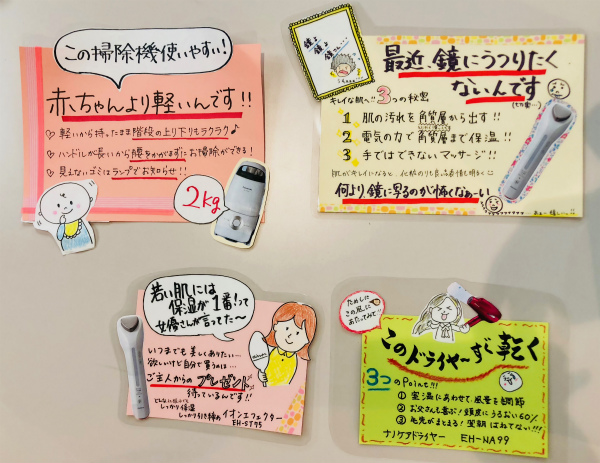 この掃除機使いやすい!
赤ちゃんより軽いんです!!
♡ 軽いから持ったまま階段の上り下りもラクラク♪
♡ ハンドルが長いから腰をかがまずにお掃除ができる!
♡ 見えないゴミはランプでお知らせ!!
2kg
鏡よ
鏡よ
鏡さん…
最近、鏡にうつりたく
ないんです
キレイな肌へ!! 3つの秘密
1 肌の汚れを角質層から出す!!
2 電気の力で角質層まで保湿!!
3 手ではできないマッサージ!!
肌がキレイになると、化粧のりも良く表情も明るく
何より鏡に写るのが怖くなぁーい
若い肌には
保湿が1番!って
女優さんが言ってた〜
いつまでも美しくありたい…
欲しいけど自分で買うのは…
ご主人からのプレゼント
待っているんです!!
しっかり保湿
しっかり引き締め イオンエフェクター
EH-ST75
ためしに
この風に
あたってみて!!
このドライヤーすぐ乾く
3つのPoint!!!
① 室温にあわせて風量を調節
② お父さんも喜ぶ!頭皮にうるおい60%
③ 毛先がまとまる!翌朝はねてない!!!
ナノケアドライヤー EH-NA99